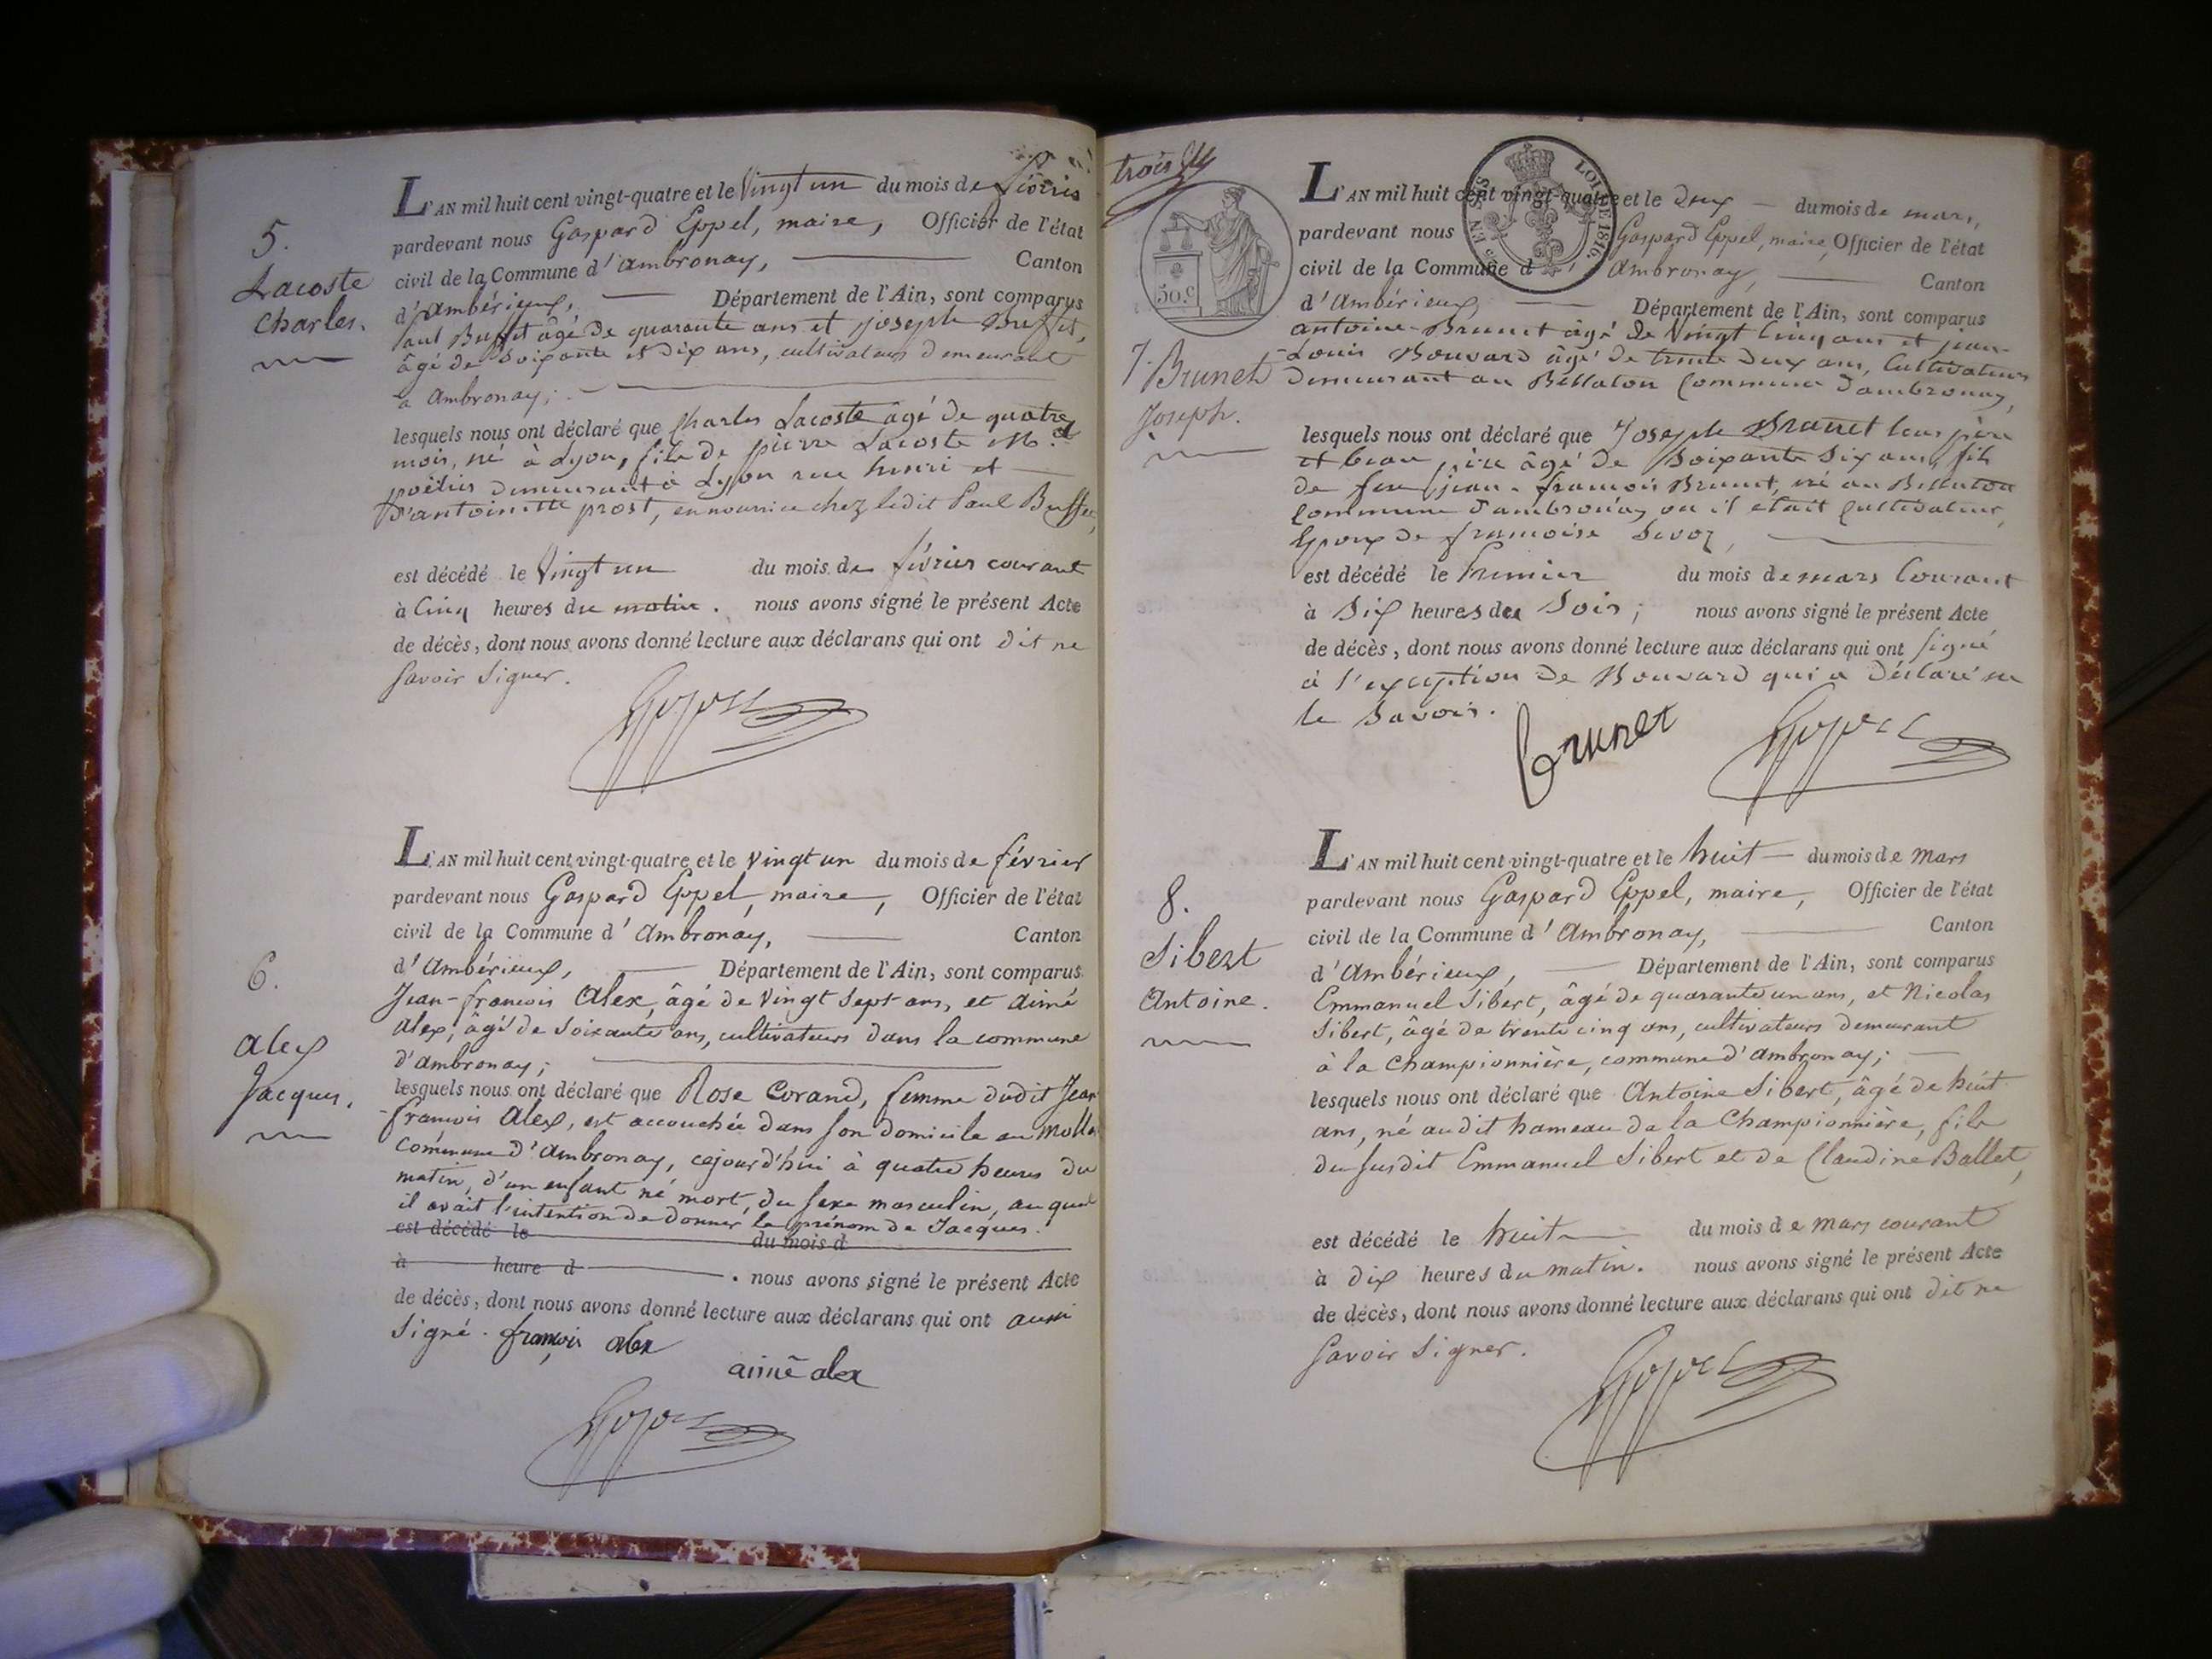 5.
Lacoste
Charles.
L'AN mil huit cent vingt-quatre et le Vingt un du mois de février
pardevant nous Gaspard Eppel, maire, Officier de l'état
civil de la Commune d'Ambronay, Canton
d'Ambérieux, Département de l'Ain, sont comparus
Paul Buffet âgé de quarante ans et joseph Buffet,
âgé de soixante et dix ans, cultivateurs demeurant
a Ambronay;
lesquels nous ont déclaré que Charles Lacoste âgé de quatre
mois, né à Lyon, fils de pierre Lacoste M.d
poëlier demeurant à Lyon rue henri et
d'antoinette prost, en nourrice chez ledit Paul Buffet,
est décédé le Vingt un du mois de février courant
à Cinq heures du matin. nous avons signé le présent Acte
de décès, dont nous avons donné lecture aux déclarans qui ont dit ne
savoir signer.
Eppel
6.
alex
Jacques.
L'AN mil huit cent vingt-quatre et le vingt un du mois de février
pardevant nous Gaspard Eppel, maire, Officier de l'état
civil de la Commune d'Ambronay, Canton
d'Ambérieux, Département de l'Ain, sont comparus
Jean-francois Alex, âgé de vingt sept ans, et aimé
Alex, âgé de soixante ans, cultivateurs dans la commune
d'ambronay;
lesquels nous ont déclaré que Rose Corand, femme dudit Jean
-francois Alex, est accouchée dans son domicile au Mollard
commune d'Ambronay, cejourd'hui à quatre heures du
matin, d'un enfant né mort, du sexe masculin, au quel
il avait l'intention de donner le prénom de Jacques.
est décédé le du mois d
à heure d . nous avons signé le présent Acte
de décès, dont nous avons donné lecture aux déclarans qui ont aussi
signé. françois alex
aimé alex
Eppel
trois
50.c
EN SUS
LOI DE 1816.
7.
Brunet
Joseph.
L'AN mil huit cent vingt-quatre et le deux du mois de mars,
pardevant nous Gaspard Eppel, maire, Officier de l'état
civil de la Commune d'Ambronay, Canton
d'Ambérieux, Département de l'Ain, sont comparus
antoine Brunet âgé de Vingt Cinq ans et jean-
Louis Bouvard âgé de trente deux ans, Cultivateurs
demeurant au Bellaton Commune d'ambronay,
lesquels nous ont déclaré que Joseph Brunet leur père
et beau père âgé de soixante six ans, fils
de feu jean-francois Brunet, né au Bellaton
Commune d'ambronay ou il était Cultivateur,
Epoux de francoise Savoz,
est décédé le premier du mois de mars Courant
à six heures du soir; nous avons signé le présent Acte
de décès, dont nous avons donné lecture aux déclarans qui ont signé
à l'exception de Bouvard qui a déclaré ne
le savoir.
brunet Eppel
8.
Sibert
Antoine.
L'AN mil huit cent vingt-quatre et le huit du mois de mars
pardevant nous Gaspard Eppel, maire, Officier de l'état
civil de la Commune d'Ambronay, Canton
d'Ambérieux, Département de l'Ain, sont comparus
Emmanuel Sibert, âgé de quarante un ans, et Nicolas
Sibert, âgé de trente cinq ans, cultivateurs demeurant
à la Championnière, commune d'Ambronay;
lesquels nous ont déclaré que Antoine Sibert, âgé de huit
ans, né audit hameau de la Championnière, fils
du susdit Emmanuel Sibert et de Claudine Ballet,
est décédé le huit du mois de mars courant
à dix heures du matin. nous avons signé le présent Acte
de décès, dont nous avons donné lecture aux déclarans qui ont dit ne
savoir signer.
Eppel